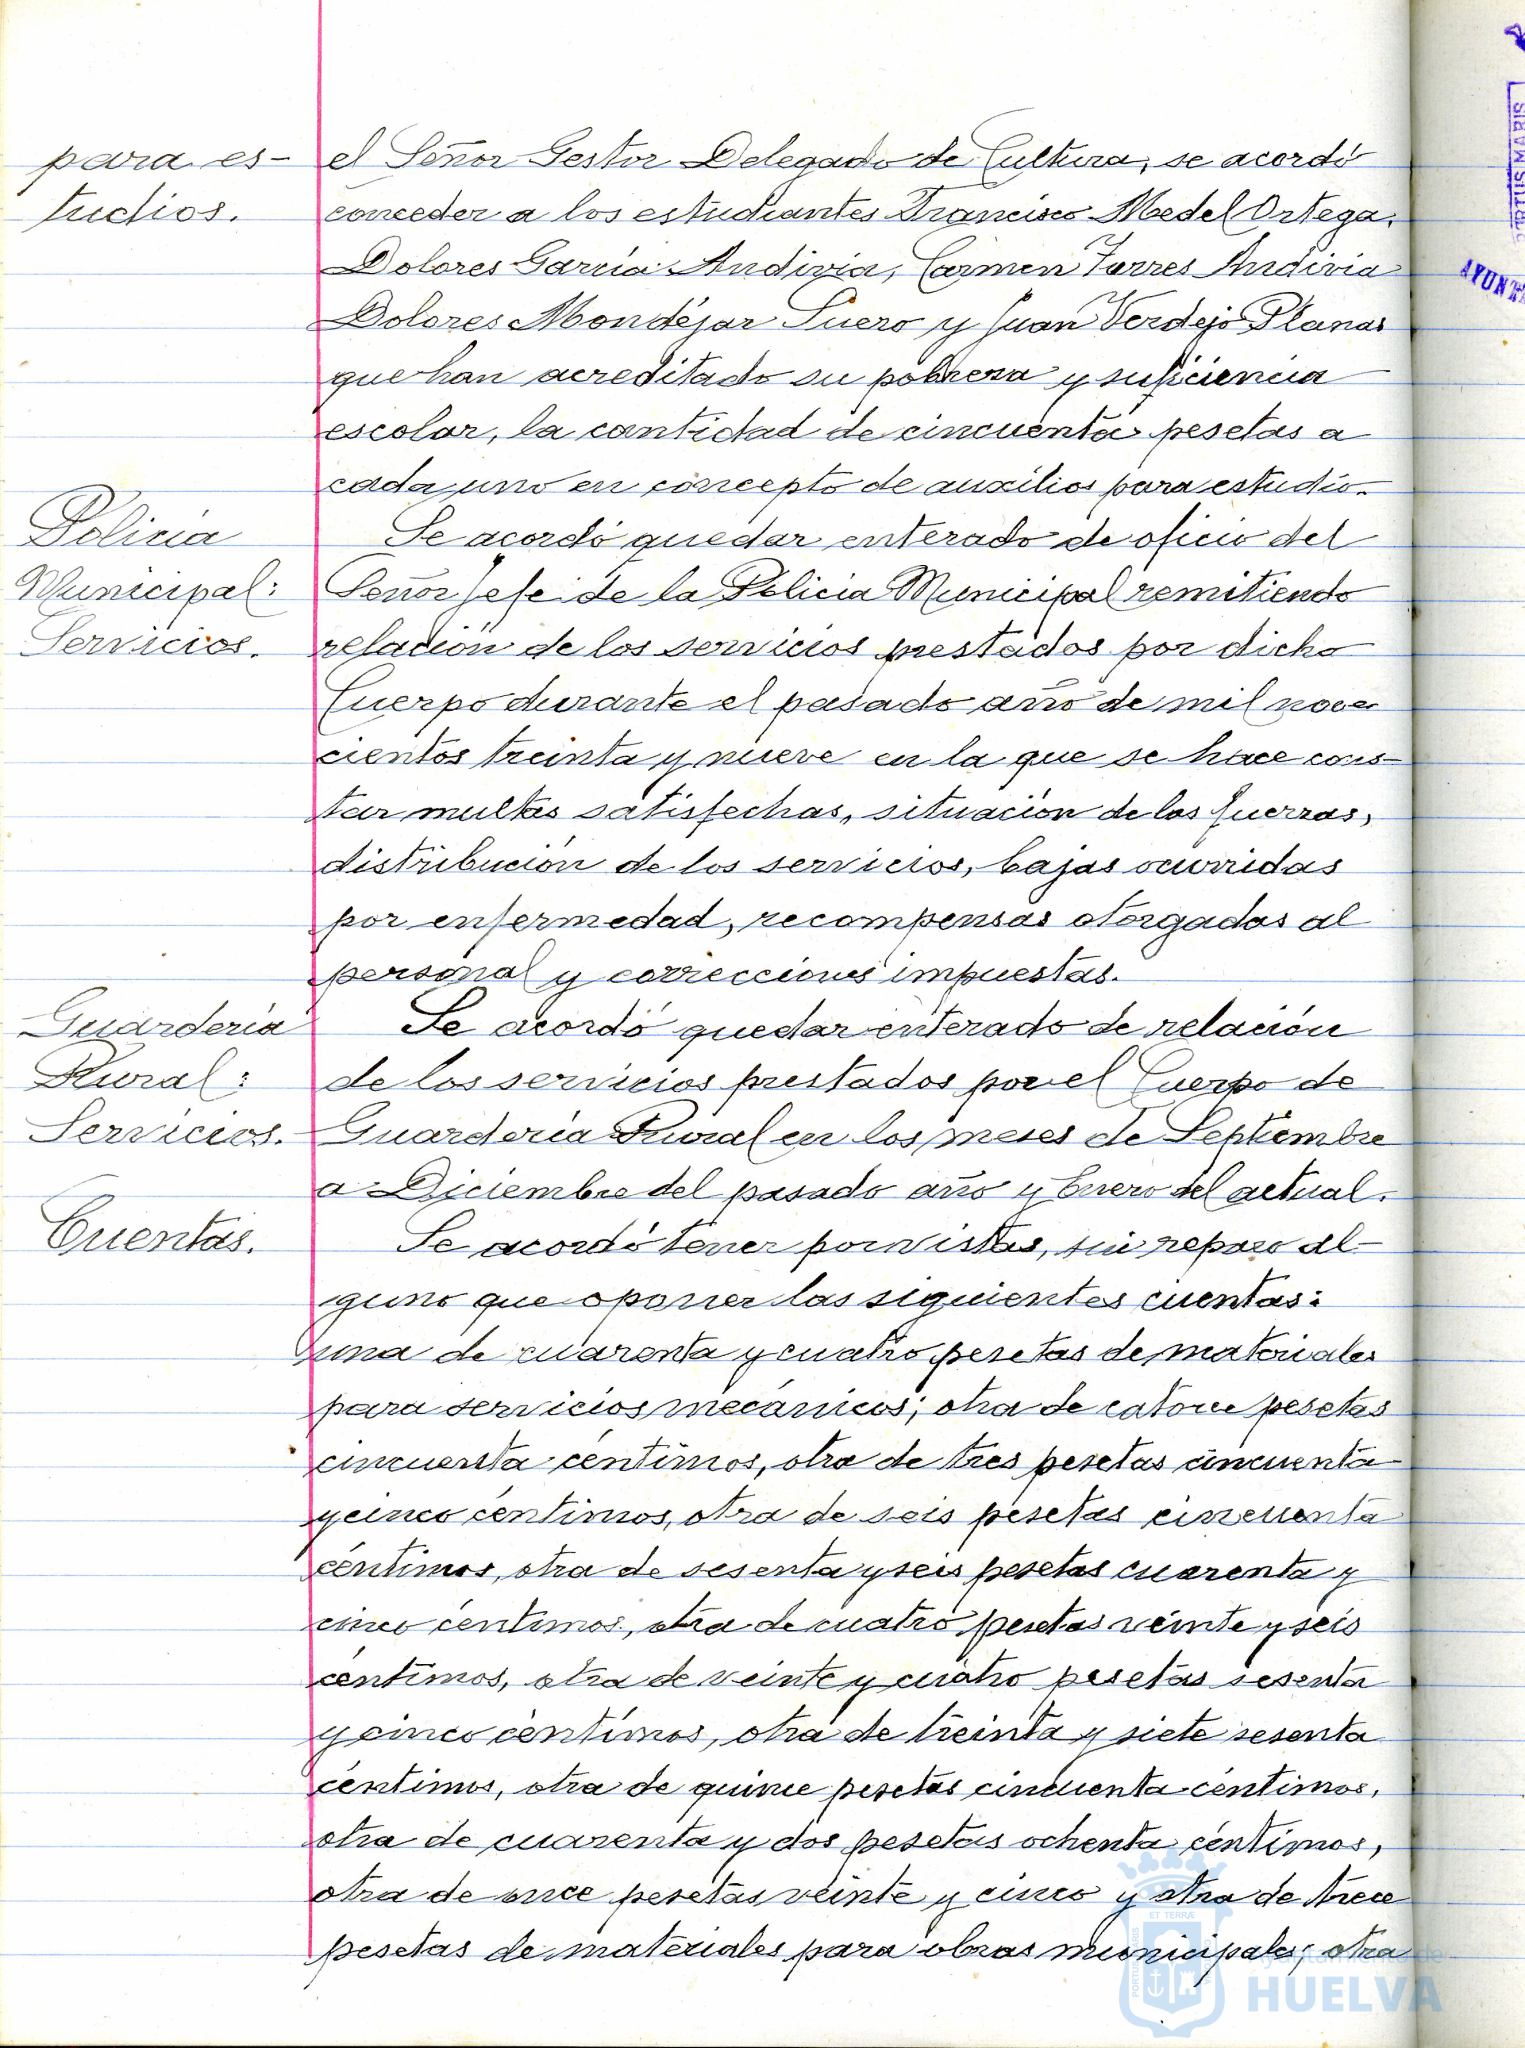 para es-
tudios.
el Señor Gestor Delegado de Cultura, se acordó
conceder a los estudiantes Francisco Medel Ortega,
Dolores García Andivia, Carmen Torres Andivia
Dolores Mondéjar Suero y Juan Verdejo Planas
que han acreditado su pobreza y suficiencia
escolar, la cantidad de cincuenta pesetas a
cada uno en concepto de auxilios para estudio.
Policia
Municipal:
Servicios.
Se acordó quedar enterado de oficio del
Señor Jefe de la Policia Municipal remitiendo
relación de los servicios prestados por dicho
Cuerpo durante el pasado año de mil nove
cientos treinta y nueve en la que se hace cons-
tar multas satisfechas, situación de las fuerzas,
distribución de los servicios, bajas ocurridas
por enfermedad, recompensas otorgadas al
personal y correcciones impuestas.
Guarderia
Rural:
Servicios.
Se acordó quedar enterado de relación
de los servicios prestados por el Cuerpo de
Guarderia Rural en los meses de Septiembre
a Diciembre del pasado año y Enero del actual.
Cuentas.
Se acordó tener por vistas, sin reparo al-
guno que oponer las siguientes cuentas:
una de cuarenta y cuatro pesetas de materiales
para servicios mecánicos; otra de catorce pesetas
cincuenta céntimos, otra de tres pesetas cincuenta
y cinco céntimos, otra de seis pesetas cincuenta
céntimos, otra de sesenta y seis pesetas cuarenta y
cinco céntimos, otra de cuatro pesetas veinte y seis
céntimos, otra de veinte y cuatro pesetas sesenta
y cinco céntimos, otra de treinta y siete sesenta
céntimos, otra de quince pesetas cincuenta céntimos,
otra de cuarenta y dos pesetas ochenta céntimos,
otra de once pesetas veinte y cinco y otra de trece
pesetas de materiales para obras municipales; otra
PORTUS MARIS
ET TERRÆ
Ayuntamiento de
HUELVA